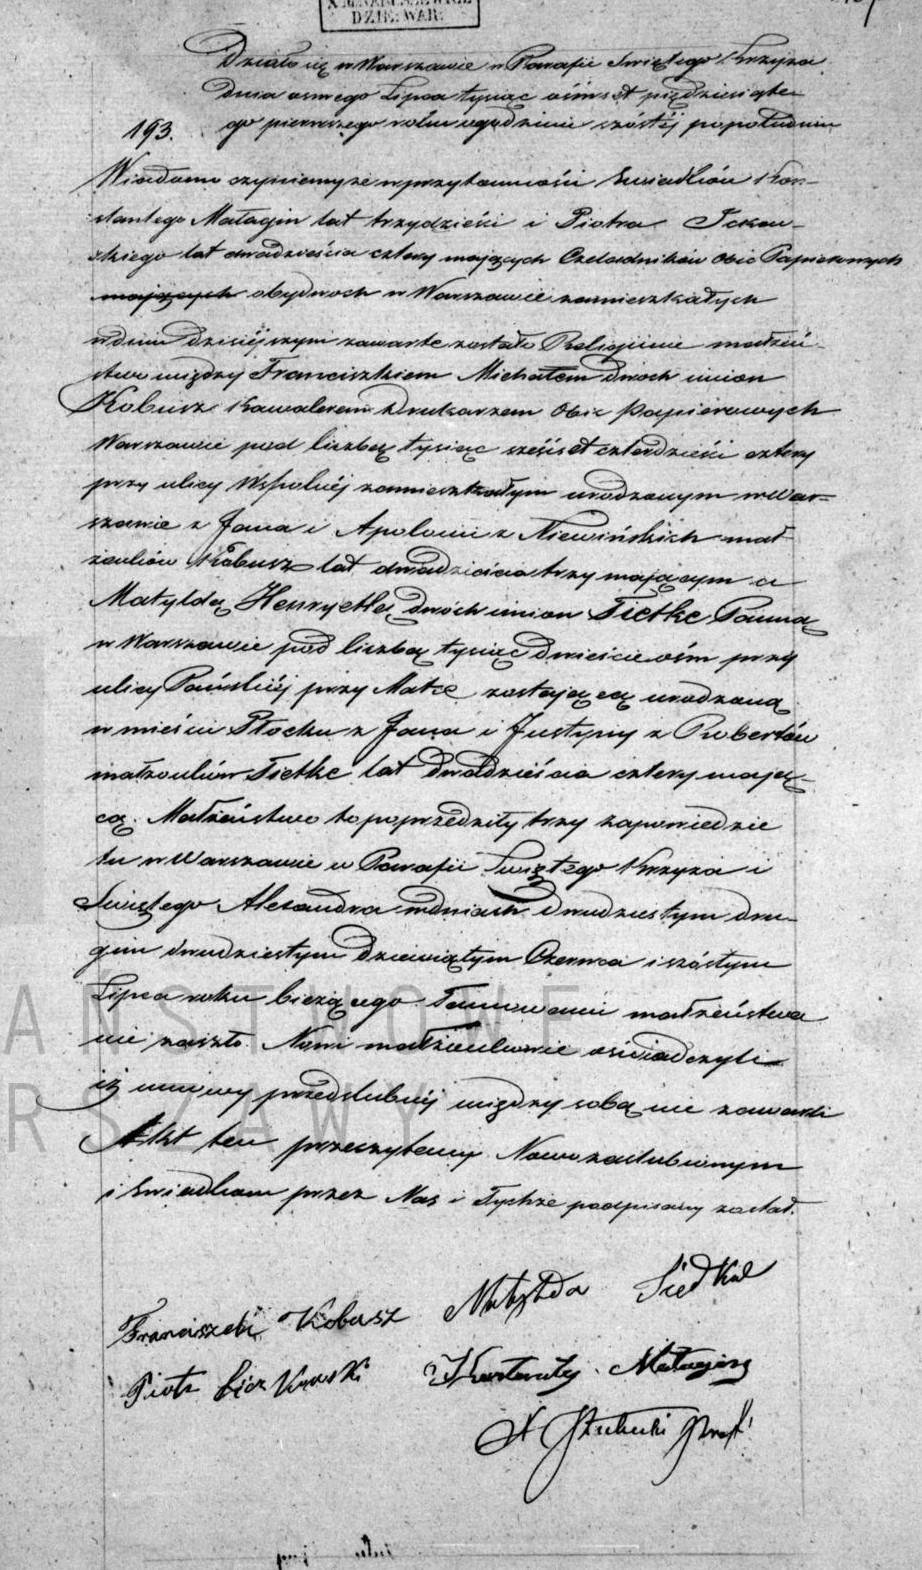 DZIE: WAR:
Działo się w Warszawie w Parafii Świętego Krzyża
dnia osmego Lipca tysiąc ośmset pięćdziesiąte-
193. go pierwszego roku o godzinie szóstej popołudniu
Wiadomo czyniemy że w przytomności Świadków Kon-
stantego Matagin lat trzydzieści i Piotra
skiego lat dwadzieścia cztery mających Czeladników Obic Papierowych
mających obydwoch w Warszawie zamieszkałych
w dniu dzisiejszym zawarte zostało Religijne małżeń-
stwo między Franciszkiem Michałem dwoch imion
Kobusz Kawalerem Drukarzem Obic Papierowych
Warszawie pod liczbą tysiąc sześset czterdzieści cztery
przy ulicy Wspolnéj zamieszkałym urodzonym w War-
szawie z Jana i Apolonii z Niewińskich mał
żonków Kobusz lat dwadzieścia trzy mającym a
Matyldą Henryettą dwóch imion Tietke Panną
w Warszawie pod liczbą tysiąc dwieście ośm przy
ulicy Pańskiéj przy Matce zostającą urodzoną
w mieście Płocku z Jana i Justyny z Robertów
małżonków Tietke lat dwadzieścia cztery mają-
cą. Małżeństwo to poprzedziły trzy zapowiedzie
tu w Warszawie w Parafii Świętego Krzyża i
Świętego Alexandra w dniach dwudziestym dru-
gim dwudziestym dziewiątym Czerwca i szóstym
Lipca roku bieżącego. Tamowanie małżeństwa
nie zaszło. Nowi małżonkowie oświadczyli
iż umowy przedślubnéj między sobą nie zawarli
Akt ten przeczytany Nowozaslubionym
i Świadkom przez Nas i Tychże podpisany został.
Franciszek Kobusz Matylda
Piotr